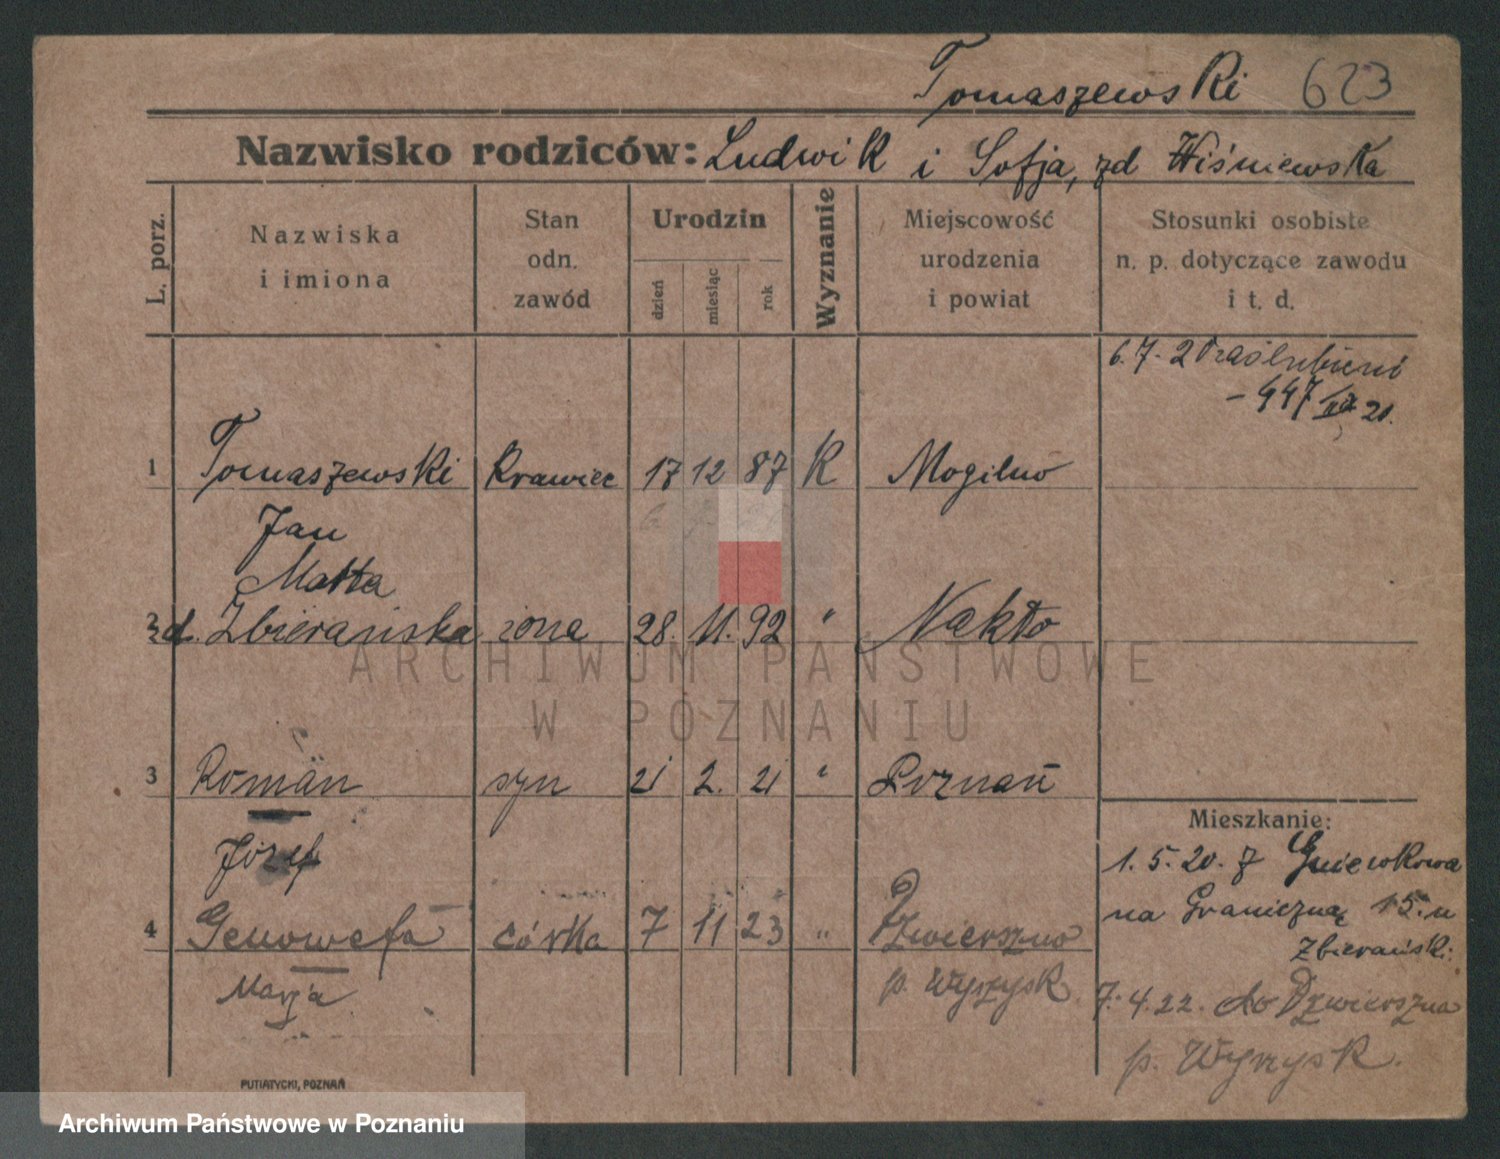 Tomaszewski 623
Nazwisko rodziców: Ludwik i Sofja, zd Wiśniewska
L. porz.
Nazwiska
i imiona
Stan
odn.
zawód
Urodzin
dzień
miesiąc
rok
Wyznanie
Miejscowość
urodzenia
i powiat
Stosunki osobiste
n. p. dotyczące zawodu
i t. d.
6. 7. 20 zaślubieni
- 447 20.
1 Tomaszewski Krawiec 17 12 87 K Mogilno
Jan
Marta
2 zd. Zbierańska żona 28. 11. 92 " Nakło
3 Roman syn 21 2. 21 " Poznań
Józef
4 Genowefa córka 7 11 23 " Dzwierszno
Marja p. Wyrzysk
Mieszkanie:
1. 5. 20. z Gniewkowa
na Graniczną 15. u
Zbierański.
7. 4. 22. do Dzwierszna
p. Wyrzysk.
PUTIATYCKI, POZNAŃ
ARCHIWUM PAŃSTWOWE
W POZNANIU
Archiwum Państwowe w Poznaniu